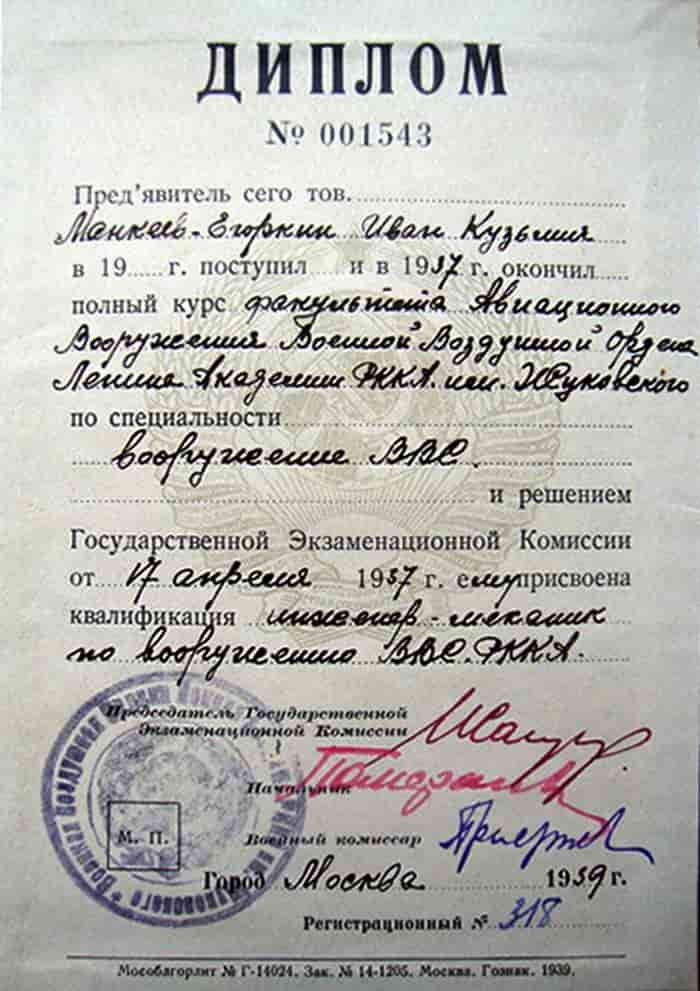 ДИПЛОМ
№ 001543
Пред'явитель сего тов.
Манкеев-Егоркин Иван Кузьмич
в 19 г. поступил и в 1937 г. окончил
полный курс факультета Авиационного
Вооружения Военной Воздушной Ордена
Ленина Академии РККА им. Жуковского
по специальности
вооружение ВВС.
и решением
Государственной Экзаменационной Комиссии
от 17 апреля 1937 г. ему присвоена
квалификация инженер-механик
по вооружению ВВС РККА.
Председатель Государственной
Экзаменационной Комиссии
Начальник
М. П.
Военный комиссар
Город Москва 1939 г.
Регистрационный № 318
Мособлгорлит № Г-14024. Зак. № 14-1205. Москва. Гознак. 1939.